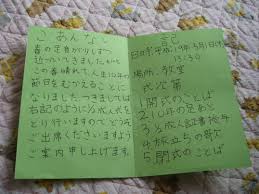 ごあんない
春の足音が少しずつ
近づいてきましたが
この春晴れて、人生10年の
節目をむかえることに
なりました。つきましては
右記のように½成人式を
とり行いますのでどうぞ
ご出席くださいますよう
ご案内申し上げます。
記
日時 平成19年3月1日(木)
13:30
場所 教室
式次第
1 開式のことば
2 10年の足あと
3 ½成人証書授与
4 旅立ちの歌
5 閉式のことば